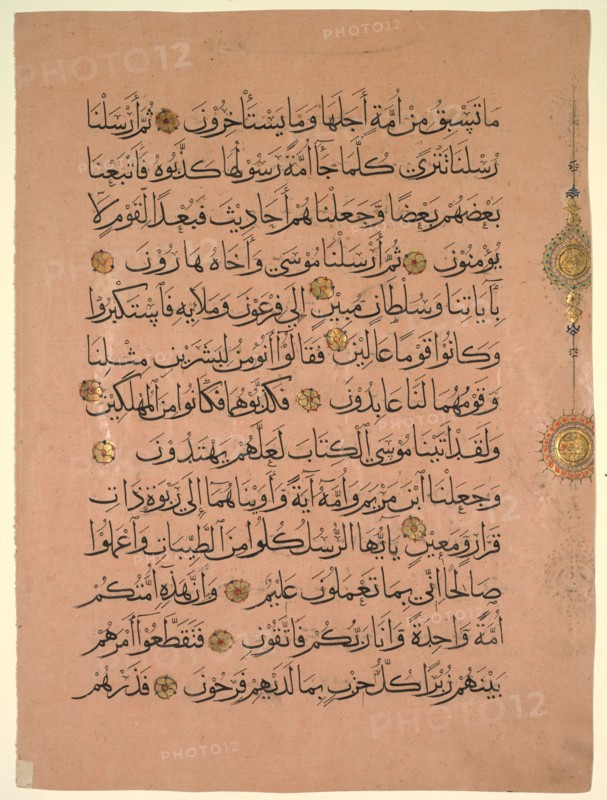 مَا تَسْبِقُ مِنْ أُمَّةٍ أَجَلَهَا وَمَا يَسْتَأْخِرُونَ ثُمَّ أَرْسَلْنَا
رُسُلَنَا تَتْرَى كُلَّمَا جَآءَ أُمَّةً رَسُولُهَا كَذَّبُوهُ فَأَتْبَعْنَا
بَعْضَهُمْ بَعْضًا وَجَعَلْنَاهُمْ أَحَادِيثَ فَبُعْدًا لِقَوْمٍ لَا
يُؤْمِنُونَ ثُمَّ أَرْسَلْنَا مُوسَى وَأَخَاهُ هَارُونَ
بِآيَاتِنَا وَسُلْطَانٍ مُبِينٍ إِلَى فِرْعَوْنَ وَمَلَائِهِ فَاسْتَكْبَرُوا
وَكَانُوا قَوْمًا عَالِينَ فَقَالُوا أَنُؤْمِنُ لِبَشَرَيْنِ مِثْلِنَا
وَقَوْمُهُمَا لَنَا عَابِدُونَ فَكَذَّبُوهُمَا فَكَانُوا مِنَ الْمُهْلَكِينَ
وَلَقَدْ آتَيْنَا مُوسَى الْكِتَابَ لَعَلَّهُمْ يَهْتَدُونَ
وَجَعَلْنَا ابْنَ مَرْيَمَ وَأُمَّهُ آيَةً وَآوَيْنَاهُمَا إِلَى رَبْوَةٍ ذَاتِ
قَرَارٍ وَمَعِينٍ يَاأَيُّهَا الرُّسُلُ كُلُوا مِنَ الطَّيِّبَاتِ وَاعْمَلُوا
صَالِحًا إِنِّي بِمَا تَعْمَلُونَ عَلِيمٌ وَإِنَّ هَذِهِ أُمَّتُكُمْ
أُمَّةً وَاحِدَةً وَأَنَا رَبُّكُمْ فَاتَّقُونِ فَتَقَطَّعُوا أَمْرَهُمْ
بَيْنَهُمْ زُبُرًا كُلُّ حِزْبٍ بِمَا لَدَيْهِمْ فَرِحُونَ فَذَرْهُمْ
PHOTO12